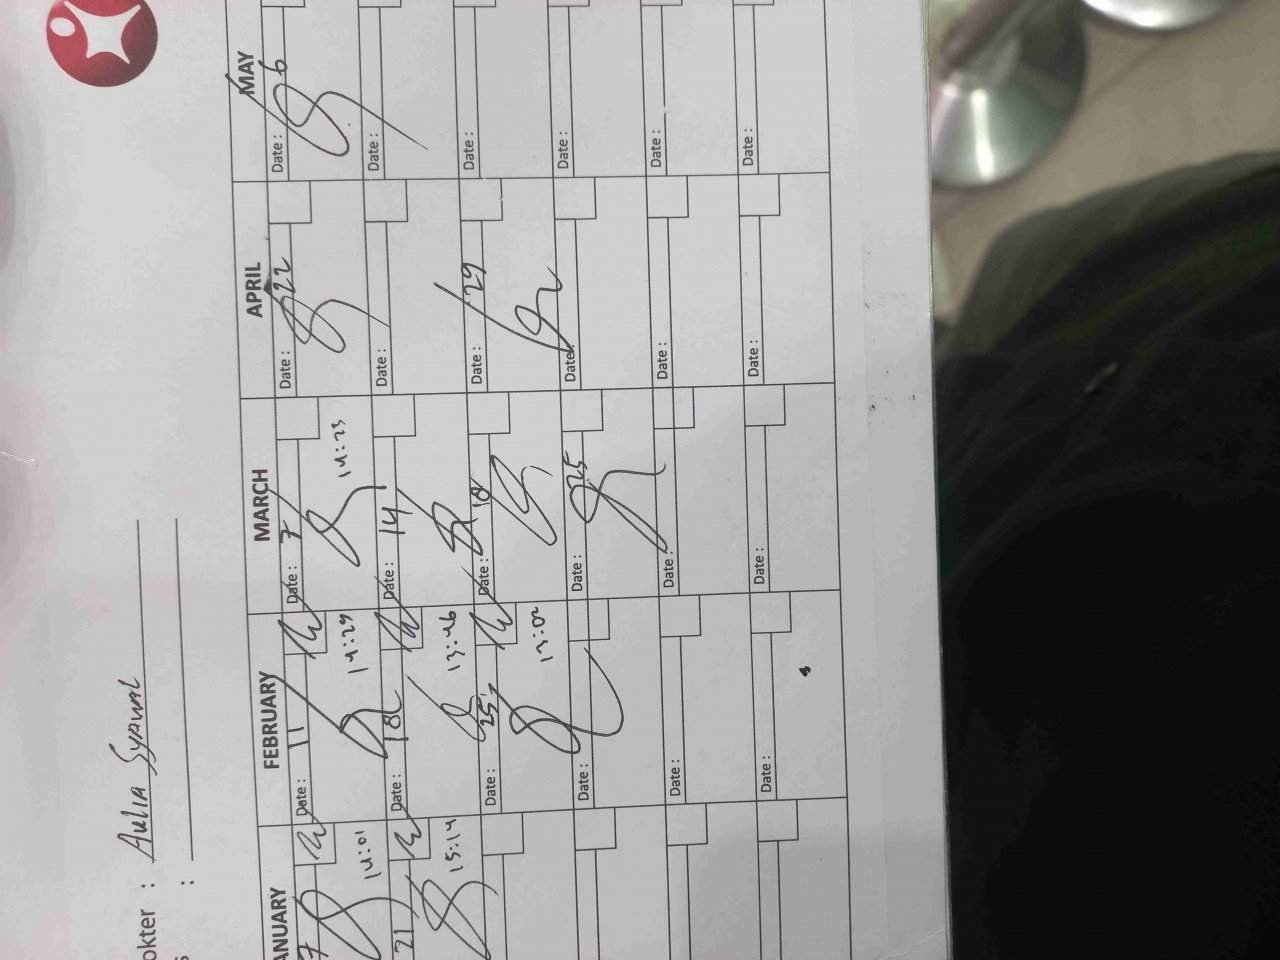 okter : Aulia Syawal
s :
ANUARY FEBRUARY MARCH APRIL MAY
7 Date : 11 Date : 7 Date : 22 Date : 6
14:01 14:29 14:23
21 Date : 18 Date : 14 Date : Date :
15:14 13:46
Date : 25 Date : 18 Date : 29 Date :
13:02
Date : Date : 25 Date : Date :
Date : Date : Date : Date :
Date : Date : Date : Date :